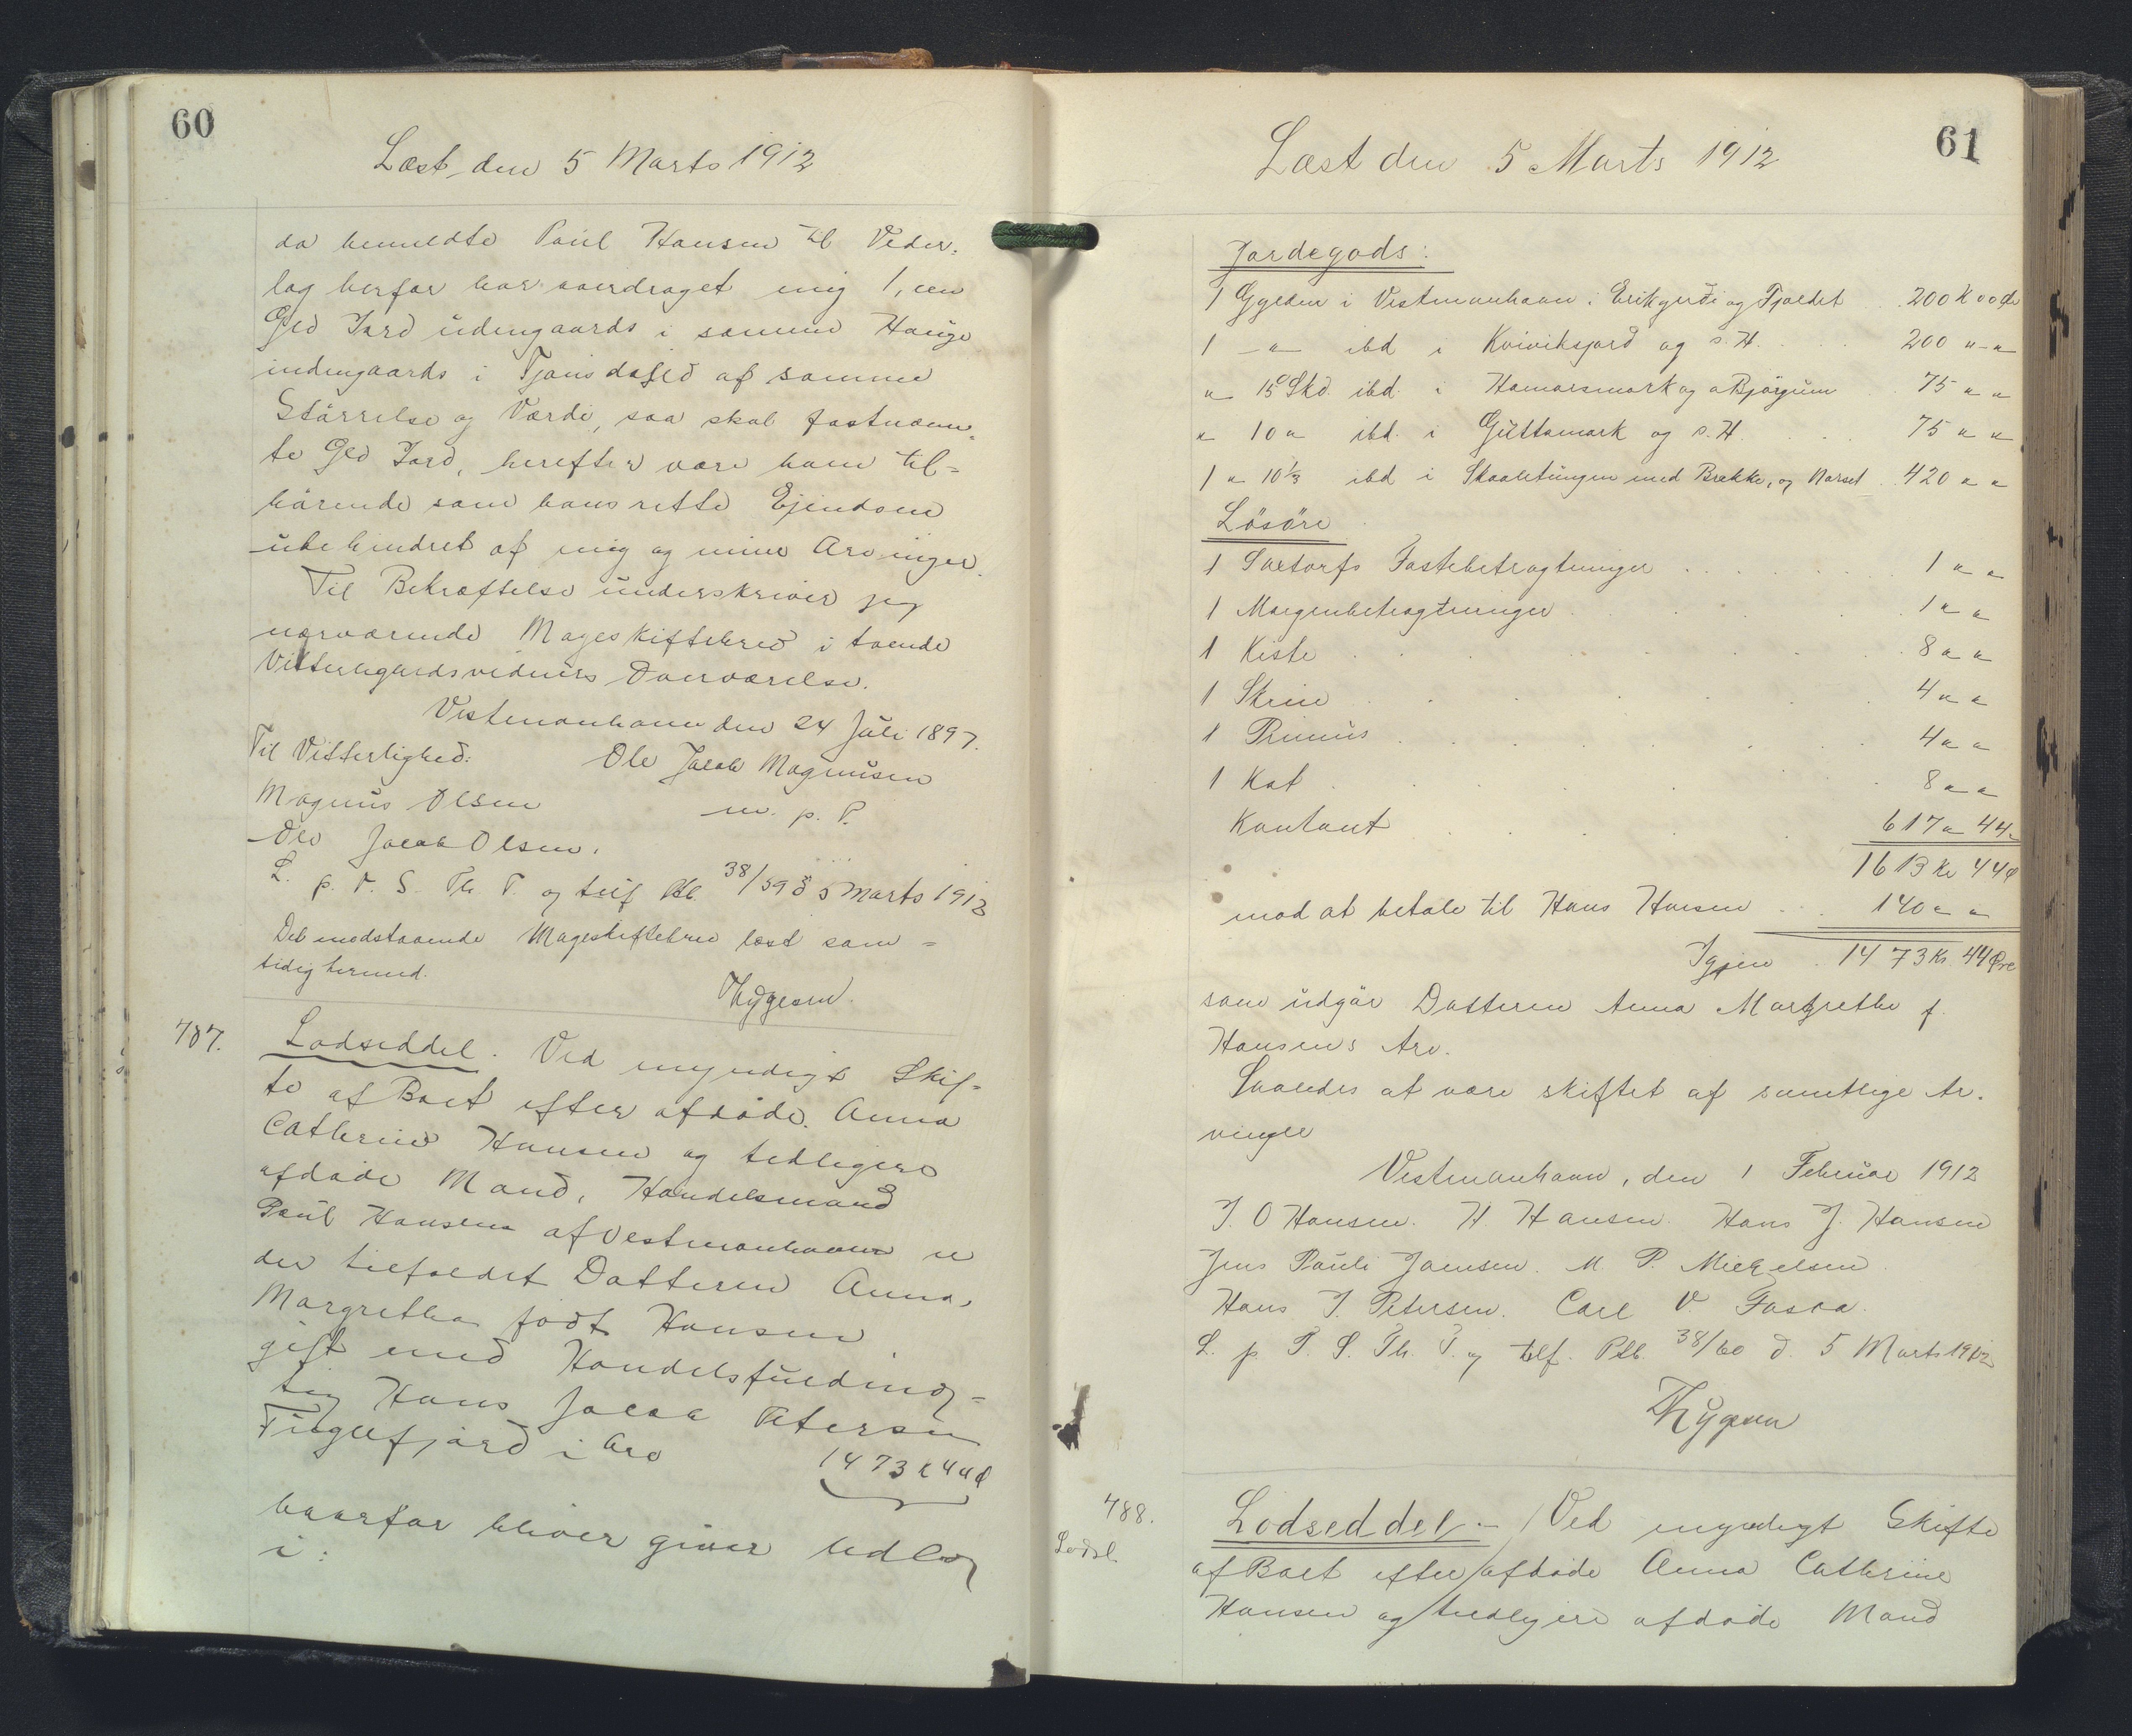 60
Læst den 5 Marts 1912
da bemeldte Poul Hansen til Veder-
lag herfor har overdraget mig 1, een
Gld Jord udengaards i samme Hauge
indengaards i af samme
Störrelse og Værdi, saa skal fastnævn-
te Gld Jord, herefter være ham til=
hörende som hans rette Ejendom
ubehindret af mig og mine Arvinger.
Til Bekræftelse underskriver jeg
nærværende Mageskiftebrev i tvende
Vitterligheds vidners Overværelse.
Vestmanhavn den 24 Juli 1897.
Til Vitterlighed: Ole Jacob Magnusen
Magnus Olsen m. p. P.
Ole Jacob Olsen.
L. p. V. S. Th. T. og tilf Plb. 38/59 d 5 Marts 1912
Det modstaaende Mageskiftebrev læst sam=
tidig hermed.
Thygesen.
787.
Lodseddel. Ved myndigt Skif-
te af Boet efter afdöde Anna
Cathrine Hansen og tidligere
afdöde Mand, Handelsmand
Poul Hansen af Vestmanhavn er
der tilfaldet Datteren Anna
Margretha födt Hansen
gift med Handelsfuldmæg=
tig Hans Jacob Petersen
Fuglefjord i Arv 1473 K 44 Ø
hvorfor bliver giver Udlæg
i:
61
Læst den 5 Marts 1912
Jordegods:
1 Gylden i Vestmanhavn i Erikgerði og Fjældet . 200 K 00 Ø
1 -"- ibd i Kviviksjord og s. H. . . . 200 " - "
" 15 Skd. ibd. i Hamarsmark og aBjörgum 75 " "
" 10 " ibd. i Guttamark og s. H. . . . 75 " "
1 " 10 1/3 ibd i Skaaletungen med Brekke, og Norset . 420 " "
Lösöre
1 Saxtorfs Fastebetragtninger . . . . . 1 " "
1 Morgenbetragtninger . . . . 1 " "
1 Kiste . . . . . . . 8 " "
1 Skrin . . . . . 4 " "
1 Primus . . . . . . . 4 " "
1 Kat . . . . . . 8 " "
Kontant . . . . . 617 " 44 "
1613 Kr 44 Ø
mod at betale til Hans Hansen . . 140 " "
Igjen . 1473 Kr. 44 Øre
som udgör Datteren Anna Margrethe f.
Hansens Arv.
Saaledes at være skiftet af samtlige Ar-
vinger
Vestmanhavn, den 1 Februar 1912
J. O Hansen. H. Hansen. Hans J. Hansen
Jens Pauli Joensen. M. P. Mikkelsen
Hans J. Petersen. Carl V.
L. p. T. S. Th. T. og tilf. Plb. 38/60 d. 5 Marts 1912
Thygesen
788.
Lodsl.
Lodseddel.- Ved myndigt Skifte
af Boet efter afdöde Anna Cathrine
Hansen og tidligere afdöde Mand